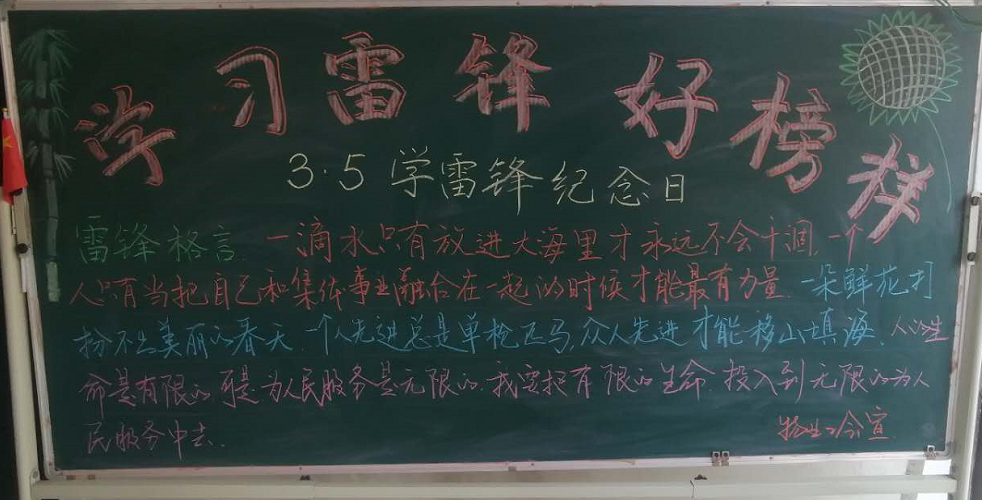 学习雷锋好榜样
3·5学雷锋纪念日
雷锋格言. 一滴水只有放进大海里才永远不会干涸,一个
人只有当把自己和集体事业融合在一起的时候才能最有力量.一朵鲜花打
扮不出美丽的春天.一个人先进总是单枪匹马,众人先进才能移山填海.人的生
命是有限的 可是为人民服务是无限的.我要把有限的生命.投入到无限的为人
民服务中去.
物业工会宣